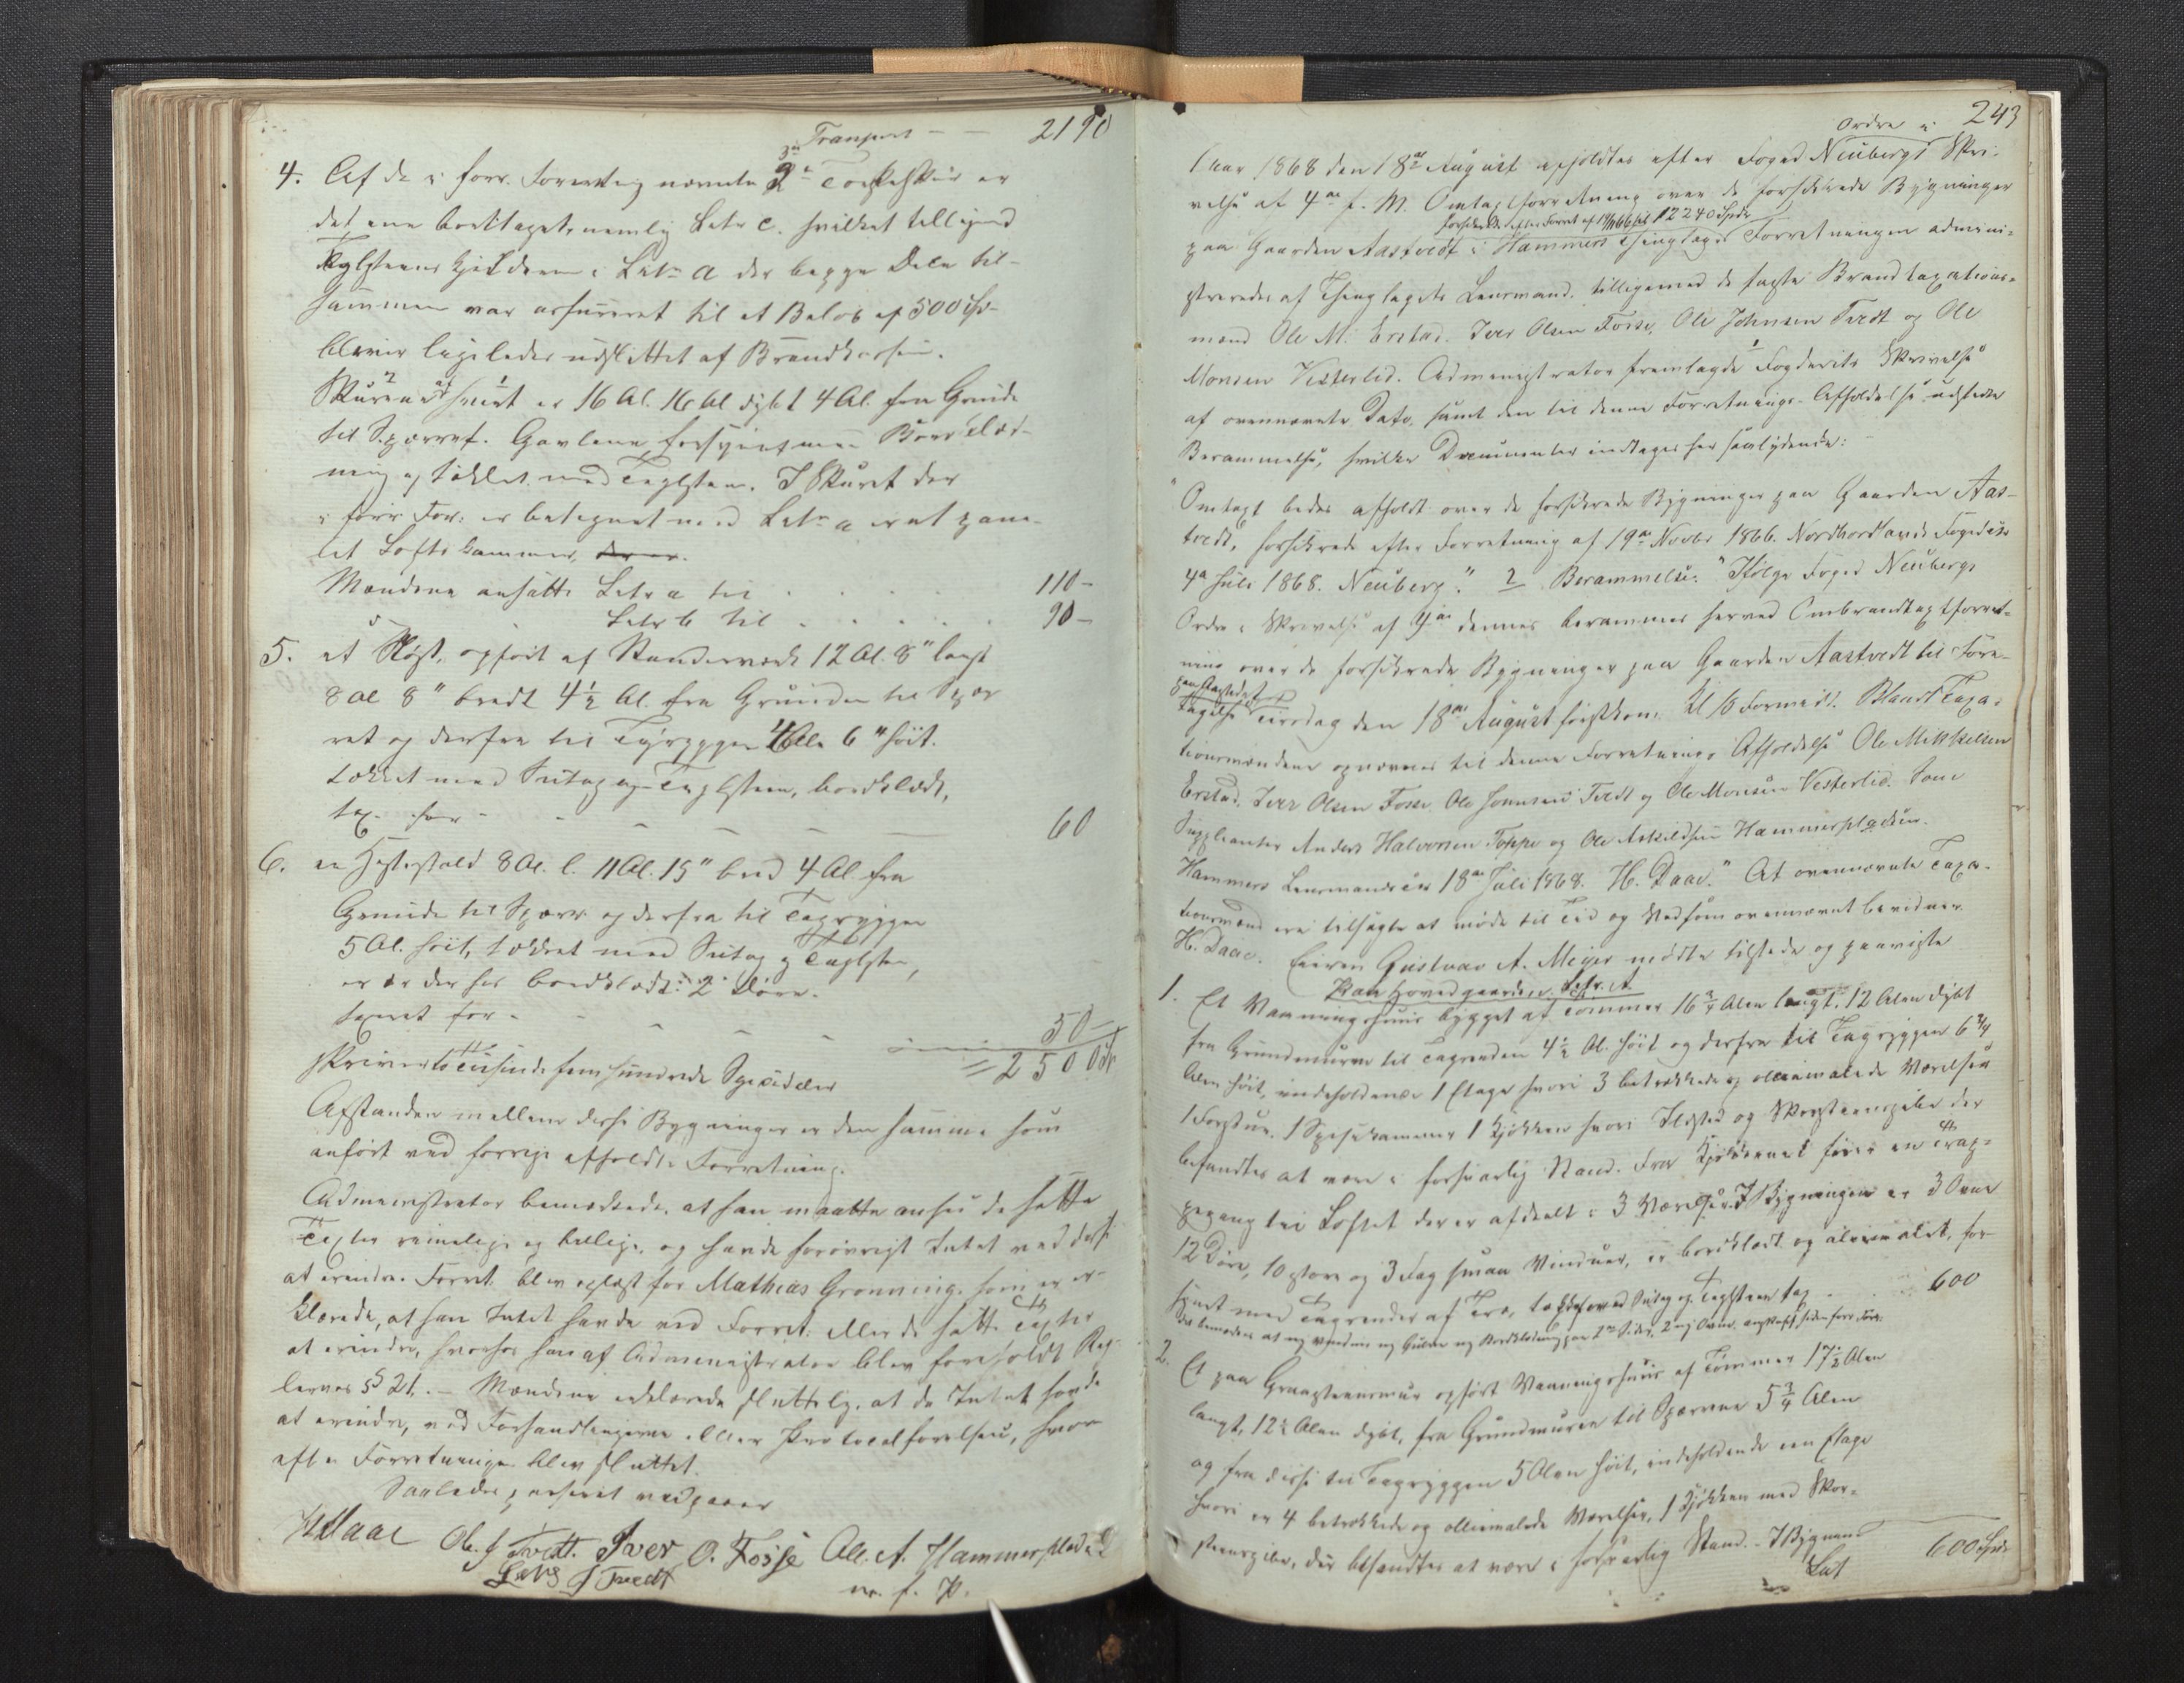 Transport — — 2190
4. Af de i forr. Forretning nævnte 2de Torskeskur er
det ene borttaget, nemlig Litr c. hvilket tilligemed
Litr a der begge Dele til-
sammen var assureret til et Beløb af 500 Spd
bliver ligeledes udslettet af Brandkassen.
er 16 Al. 16 Al dybt 4 Al. fra Grunde
til Sperret. Gavlene forsynet med Bordklæd-
ning og tækket med Taglsteen. I Skuret der
i forr For: er betegnet med Litr a er et pane-
let Loftskammer,
Mændene ansatte Litr a til . . . . 110 –
Litr b til . . . . . 90 –
5. et Nøst, opført af Standerværk 12 Al. 8" langt
8 Al 8" bredt 4½ Al. fra Grunden til Spær
ret og derfra til Tagryggen 4 Alen 6" høit.
tækket med Sutag og Taglsteen, bordklædt,
tax. for – – – – 60
6. en Hestestald 8 Al. l. 11 Al. 15" bred 4 Al. fra
Grunde til Spærr. og derfra til Tagryggen
5 Al. høit, tækket med Sutag og Taglsteen,
bordklædt: 2 Døre.
taxeret for – – – 50 –
= 2500 Spd
skriver to Tusinde fem hundrede Speciedaler
Afstanden mellem disse Bygninger er den samme som
anført ved forrige afholdte Forretning.
Administrator bemærkede, at han maatte ansee de satte
Taxter rimelige og billige, og havde forøvrigt Intet ved disse
at erindre. Forret. blev oplæst for Mathias Grønning, som er-
klærede, at han Intet havde ved Forret. eller de satte Taxter
at erindre, hvorhos han af Administrator blev foreholdt Reg-
lernes § 21. – Mændene erklærede sluttelig, at de Intet havde
at erindre, ved Forhandlingerne eller Protocolførelsen, hvor-
efter Forretningen blev sluttet.
Saaledes passeret vedgaaer
H Daae Ole J Tvedt. Iver O. Fosse Ole A. Hammerplads
Lars J Tvedt m. f. P.
Ordre i 243
Aar 1868 den 18de August afholdtes efter Foged Neubergs Skri-
velse af 4de f. M. Omtaxtforretning over de forsikrede Bygninger
forsikrede efter Forret af 19/11 66 til 12240 Spdr
paa Gaarden Aastvedt i Hammers Thinglag. Forretningen admini-
streredes af Thinglagets Lensmand, tilligemed de faste Brandtaxations-
mænd Ole M. Erstad. Iver Olsen Fosse, Ole Johnsen Tvedt og Ole
Monsen Vesterlid. Administrator fremlagde 1 Fogderiets Skrivelse
af ovennævnte Dato, samt den til denne Forretnings Afholdelse udstedte
Berammelse, hvilke Documenter indtages her saalydende:
"Omtaxt bedes afholdt over de forsikrede Bygninger paa Gaarden Aas-
tvedt, forsikrede efter Forretning af 19de Novbr 1866. Nordhordlands Fogderie
4de Juli 1868. Neuberg." 2 Berammelse: "Ifølge Foged Neubergs
Ordre i Skrivelse af 4de dennes berammes herved Ombrandtaxtforret-
ning over de forsikrede Bygninger paa Gaarden Aastvedt til Fore-
paa Aastedet
tagelse Tirsdag den 18de August førstkom. Kl 10 Formidd. Blandt Taxa-
tionsmændene opnævnes til denne Forretnings Afholdelse Ole Mikkelsen
Erstad. Iver Olsen Fosse Ole Johnsen Tvedt og Ole Monsen Vesterlid. Som
Suppleanter Anders Halvorsen Toppe og Ole Askildsen Hammerpladsen.
Hammers Lensmandsens 18de Juli 1868. H. Daae." At ovennævnte Taxa-
tionsmænd ere tilsagte at møde til Tid og Sted som ovennævnt bevidner
H. Daae. Eieren Gustav A. Meyer mødte tilstede og paaviste
Paa Hovedgaarden. Litr. A
1. Et Vaaningshuus bygget af Tømmer 16¾ Alen langt. 12 Alen dybt
fra Grundmuren til Tagrenden 4½ Al. høit og derfra til Tagryggen 6¾
Alen høit, indeholdende 1 Etage hvori 3 betrækkede og oliemalede Værelser
1 Forstue. 1 Spisekammer 1 Kjøkken hvori Ildsted og Skorsteenspibe der
befandtes at være i forsvarlig Stand. Fra Kjøkkenet fører en Trap-
pegang til Loftet der er afdeelt i 3 Værelser. I Bygningen er 3 Ovne
12 Døre, 10 store og 3 Fag smaa Vinduer, er bordklædt og oliemalet, for-
synet med Tagrender af Træ, tækket med Sutag og Taglsteen tax . . . 600
2. Et paa Graasteensmur opført Vaaningshuus af Tømmer 17½ Alen
langt, 12½ Alen dybt, fra Grundmuren til Spærrene 5¾ Alen
og fra disse til Tagryggen 5 Alen høit, indeholdende een Etage
hvori er 4 betrækkede og oliemalede Værelser, 1 Kjøkken med Skor-
steenspibe, der befandtes at være i forsvarlig Stand. – I Bygnin-
Lat 600 Spdr